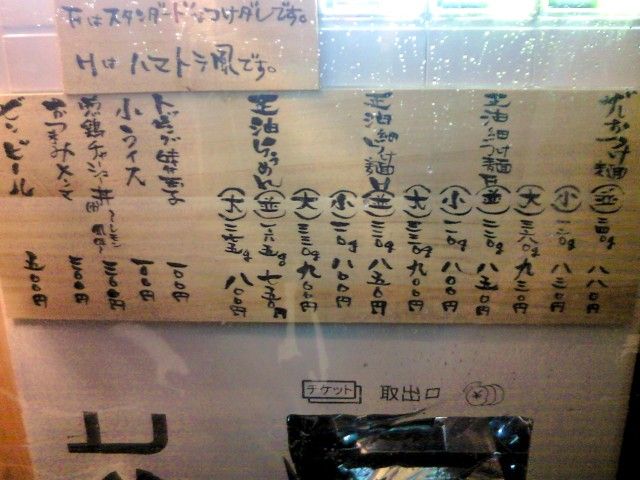 Fはスタンダードなつけダレです。
Hはハマトラ風です。
ザしおつけ麺
(並) 二四〇g 八八〇円
(小) 一二〇g 八三〇円
(大) 三六〇g 九三〇円
(並) 二四〇g 八五〇円
(小) 一二〇g 八〇〇円
(大) 三三〇g 九〇〇円
(並) 二二〇g 八五〇円
(小) 一一〇g 八〇〇円
(大) 三三〇g 九〇〇円
正油らぅめん
(並) 一六五g 七五〇円
(大) 八〇〇円
トッピング味玉子 一〇〇円
小ライス 一〇〇円
鶏チャーシュー丼 三〇〇円
おつまみメンマ 三〇〇円
ビンビール 五〇〇円
チケット 取出口 ¥